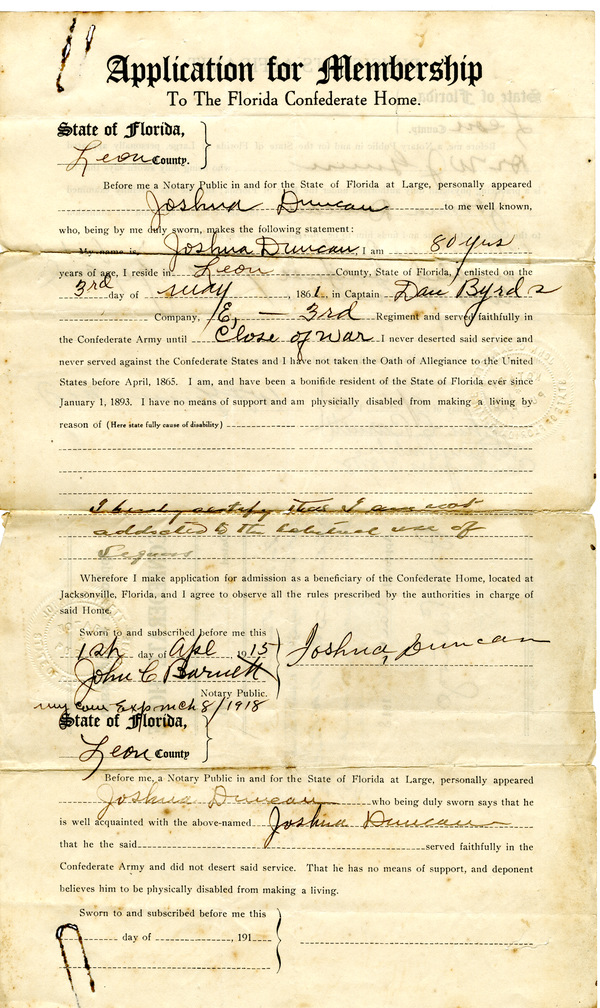 Application for Membership
To The Florida Confederate Home.
State of Florida,
Leon County.
Before me a Notary Public in and for the State of Florida at Large, personally appeared
Joshua Duncan to me well known,
who, being by me duly sworn, makes the following statement:
My name is, Joshua Duncan, I am 80 yrs
years of age, I reside in Leon County, State of Florida, I enlisted on the
3rd day of May, 1861, in Captain Dan Byrds
Company, E, — 3rd Regiment and served faithfully in
the Confederate Army until Close of War I never deserted said service and
never served against the Confederate States and I have not taken the Oath of Allegiance to the United
States before April, 1865. I am, and have been a bonifide resident of the State of Florida ever since
January 1, 1893. I have no means of support and am physicially disabled from making a living by
reason of (Here state fully cause of disability)
I hereby certify that I am not
addicted to the habitual use of
Liquors
Wherefore I make application for admission as a beneficiary of the Confederate Home, located at
Jacksonville, Florida, and I agree to observe all the rules prescribed by the authorities in charge of
said Home.
Sworn to and subscribed before me this
12th day of Apl, 1915 Joshua, Duncan
John C Barnett
Notary Public.
my com Exp mch 8/1918
State of Florida,
Leon County
Before me, a Notary Public in and for the State of Florida at Large, personally appeared
Joshua Duncan who being duly sworn says that he
is well acquainted with the above-named Joshua Duncan
that he the said served faithfully in the
Confederate Army and did not desert said service. That he has no means of support, and deponent
believes him to be physically disabled from making a living.
Sworn to and subscribed before me this
day of , 191